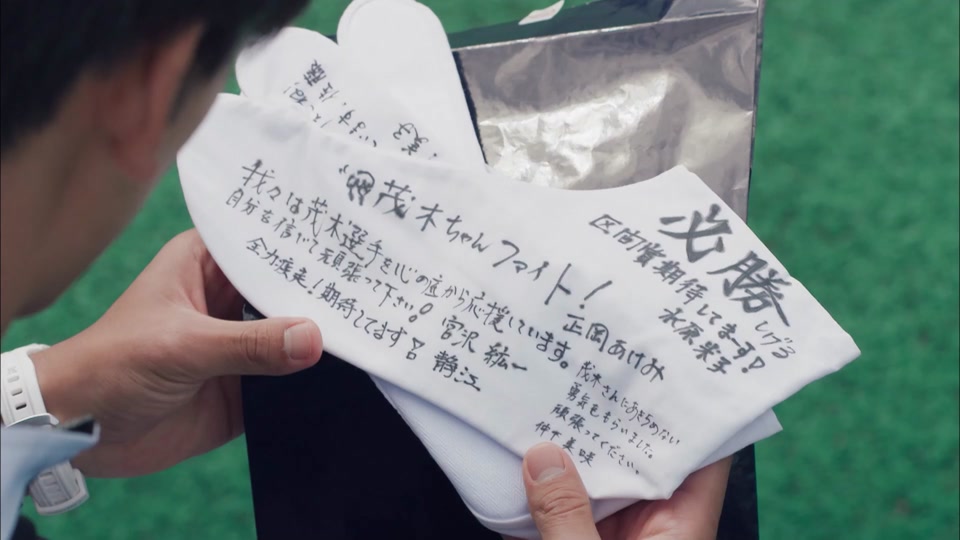 必勝
しげる
区間賞期待してます!
水原米子
茂木ちゃんファイト!
正岡あけみ
我々は茂木選手を心の底から応援しています。
自分を信じて頑張って下さい。宮沢紘一
全力疾走!期待してます! 静江
茂木さんにあきらめない
勇気をもらいました。
頑張ってください。
仲下美咲